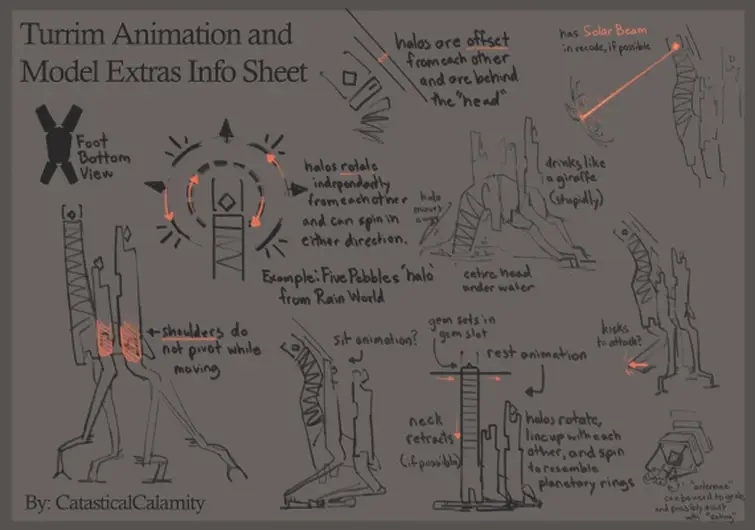 Turrim Animation and
Model Extras Info Sheet
halos are offset
from each other
and are behind
the "head"
has Solar Beam
in recode, if possible
Foot
Bottom
View
halos rotate
independantly
from each other
and can spin in
either direction.
Example: Five Pebbles' halo
from Rain World
drinks like
a giraffe
(stupidly)
halo
moves
away
entire head
under water
shoulders do
not pivot while
moving
sit animation?
gem sets in
gem slot
rest animation
kicks
to attack?
neck
retracts
(if possible)
halos rotate,
line up with each
other, and spin
to resemble
planetary rings
"antennae"
can be used to grab
and possibly assist
with "eating"
By: CatasticalCalamity